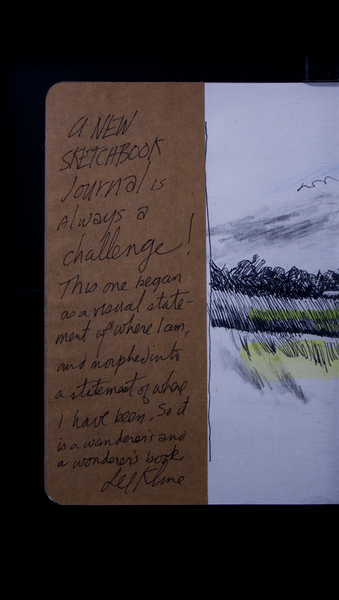 A NEW
SKETCHBOOK
Journal is
Always a
challenge!
This one began
as a visual state-
ment of where I am,
and morphed into
a statement of where
I have been. So it
is a wanderer's and
a wonderer's book
Lee Kline